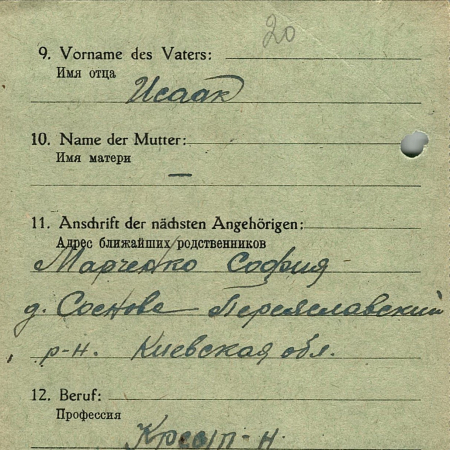 20
9. Vorname des Vaters:
Имя отца
Исаак
10. Name der Mutter:
Имя матери
—
11. Anschrift der nächsten Angehörigen:
Адрес ближайших родственников
Марченко София
д. Соснове Переяславский
р-н. Киевская обл.
12. Beruf:
Профессия
Кресп-н